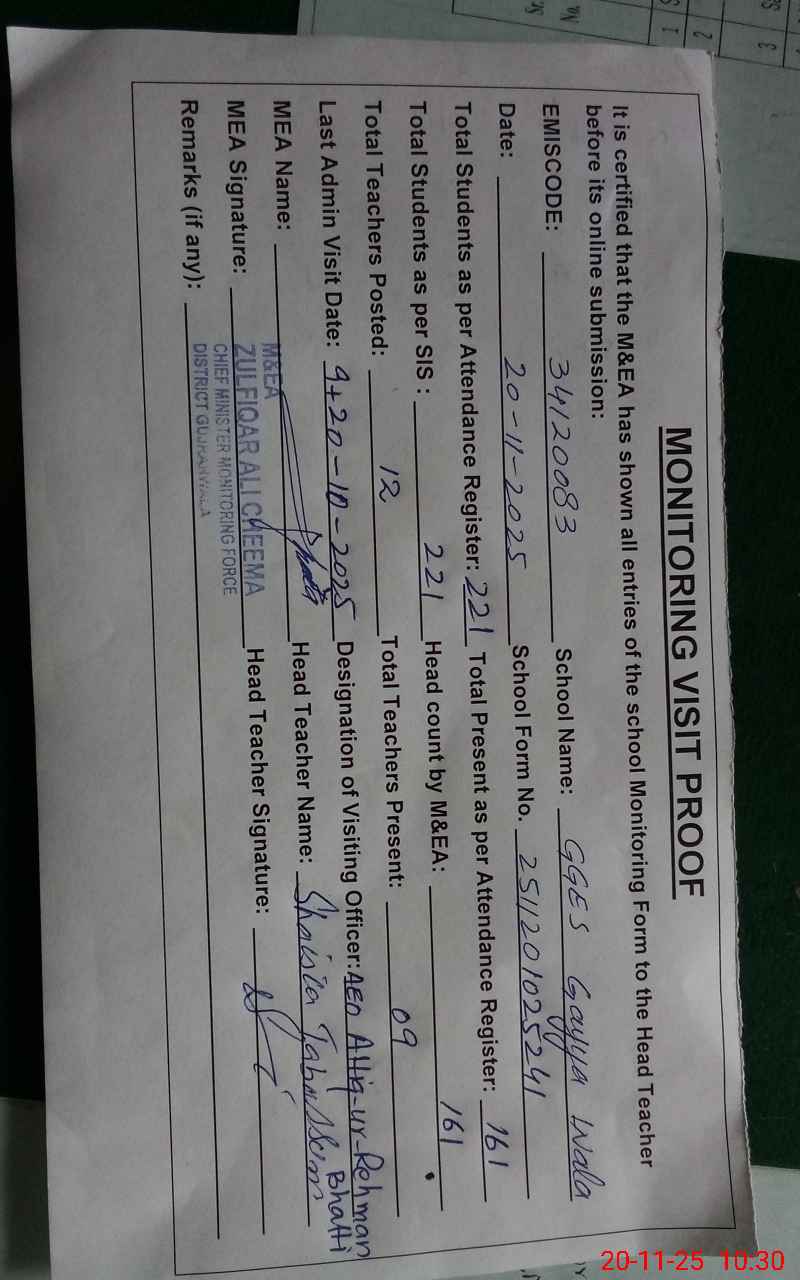 MONITORING VISIT PROOF
It is certified that the M&EA has shown all entries of the school Monitoring Form to the Head Teacher
before its online submission:
EMISCODE: 34120083 School Name: GGES Gayya Wala
Date: 20-11-2025 School Form No. 2511201025241
Total Students as per Attendance Register: 221 Total Present as per Attendance Register: 161
Total Students as per SIS : 221 Head count by M&EA: 161
Total Teachers Posted: 12 Total Teachers Present: 09
Last Admin Visit Date: 9+20-10-2025 Designation of Visiting Officer: AEO Attiq-ur-Rehman Bhatti
MEA Name: Head Teacher Name: Shaista Tabassum
MEA Signature: Head Teacher Signature:
M&EA
ZULFIQAR ALI CHEEMA
CHIEF MINISTER MONITORING FORCE
DISTRICT GUJRANWALA
Remarks (if any):
20-11-25 10:30